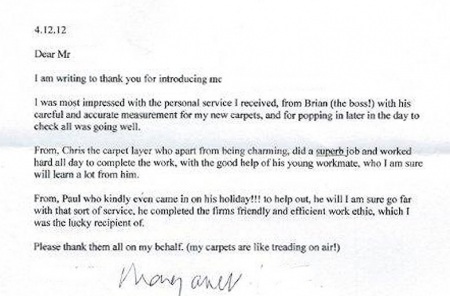 4.12.12
Dear Mr
I am writing to thank you for introducing me
I was most impressed with the personal service I received, from Brian (the boss!) with his
careful and accurate measurement for my new carpets, and for popping in later in the day to
check all was going well.
From, Chris the carpet layer who apart from being charming, did a superb job and worked
hard all day to complete the work, with the good help of his young workmate, who I am sure
will learn a lot from him.
From, Paul who kindly even came in on his holiday!!! to help out, he will I am sure go far
with that sort of service, he completed the firms friendly and efficient work ethic, which I
was the lucky recipient of.
Please thank them all on my behalf. (my carpets are like treading on air!)
Margaret